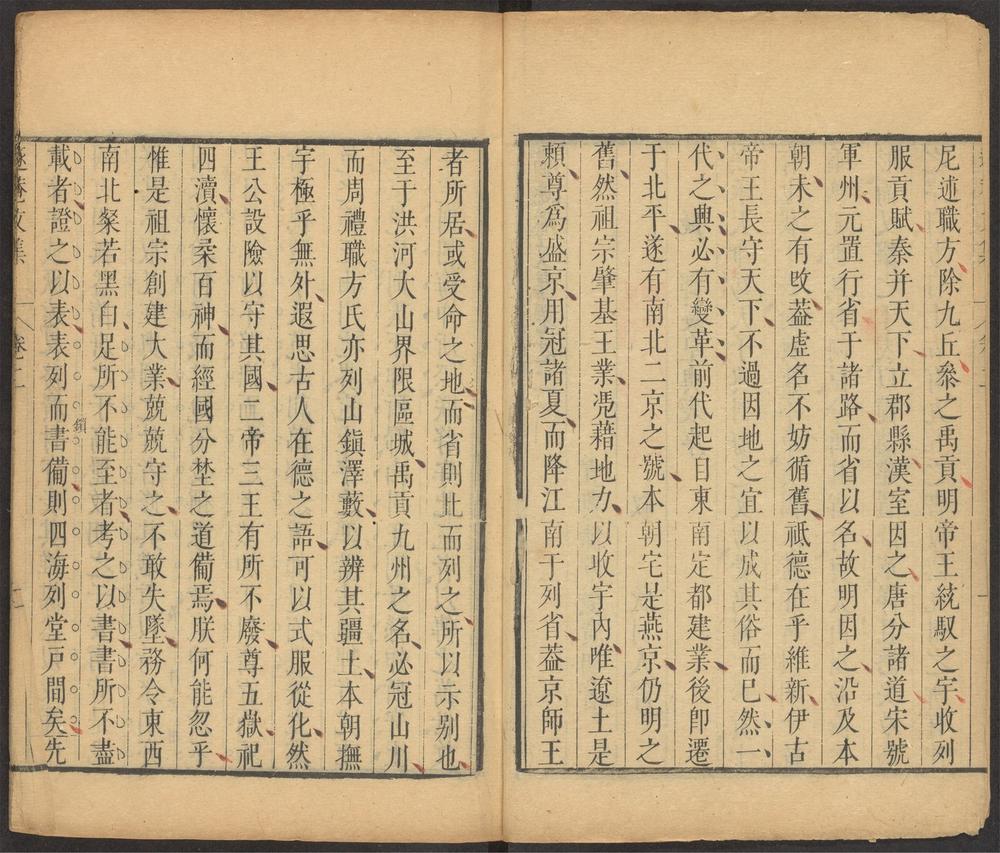 尼述職方除九丘叅之禹貢明帝王統馭之宇收列
服貢賦秦并天下立郡縣漢室因之唐分諸道宋號
軍州元置行省于諸路而省以名故明因之沿及本
朝未之有改葢虛名不妨循舊祗德在乎維新伊古
帝王長守天下不過因地之宜以成其俗而巳然一
代之典必有變革前代起日東南定都建業後卽遷
于北平遂有南北二京之號本朝宅是燕京仍明之
舊然祖宗肇基王業凴藉地力以收宇內唯遼土是
頼尊為盛京用冠諸夏而降江南于列省葢京師王
者所居或受命之地而省則㐀而列之所以示别也
至于洪河大山界限區域禹貢九州之名必冠山川
而周禮職方氏亦列山鎭澤藪以辨其疆土本朝撫
宇極乎無外遐思古人在德之語可以式服從化然
王公設險以守其國二帝三王有所不廢尊五嶽祀
四瀆懷柔百神而經國分埜之道備焉朕何能忽乎
惟是祖宗創建大業兢兢守之不敢失墜務令東西
南北粲若黑白足所不能至者考之以書書所不盡
載者證之以表表列而書備則四海列堂戸間矣先
鎭
遂菴文集
卷二